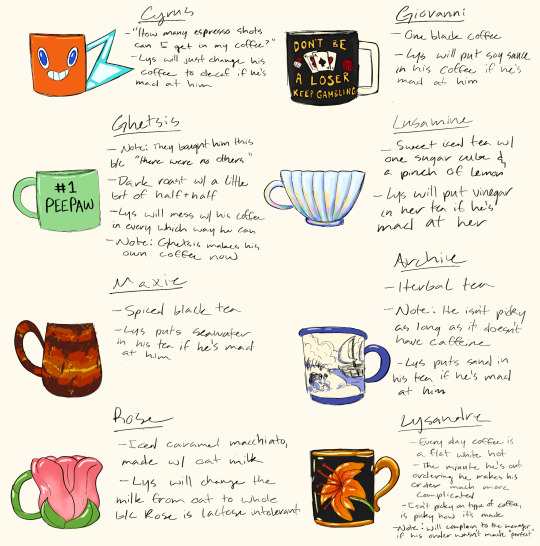 Cyrus
- "How many espresso shots
can I get in my coffee?"
- Lys will just change his
coffee to decaf if he's
mad at him
Giovanni
- One black coffee
- Lys will put soy sauce
in his coffee if he's
mad at him
DON'T BE
A LOSER
KEEP GAMBLING
Ghetsis
- Note: They bought him this
b/c "there were no others"
- Dark roast w/ a little
bit of half+half
- Lys will mess w/ his coffee
in every which way he can
- Note: Ghetsis makes his
own coffee now
#1
PEEPAW
Lusamine
- Sweet iced tea w/
one sugar cube &
a pinch of lemon
- Lys will put vinegar
in her tea if he's
mad at her
Maxie
- Spiced black tea
- Lys puts seawater
in his tea if he's mad
at him
Archie
- Herbal tea
- Note: He isn't picky
as long as it doesn't
have caffeine
- Lys puts sand in
his tea if he's mad
at him
Rose
- Iced caramel macchiato,
made w/ oat milk
- Lys will change the
milk from oat to whole
b/c Rose is lactose intolerant
Lysandre
- Every day coffee is
a flat white hot
- The minute he's out
ordering he makes his
order much more
complicated
- Isn't picky on type of coffee,
is picky how it's made
- Note: will complain to the manager
if his order wasn't made "perfect"